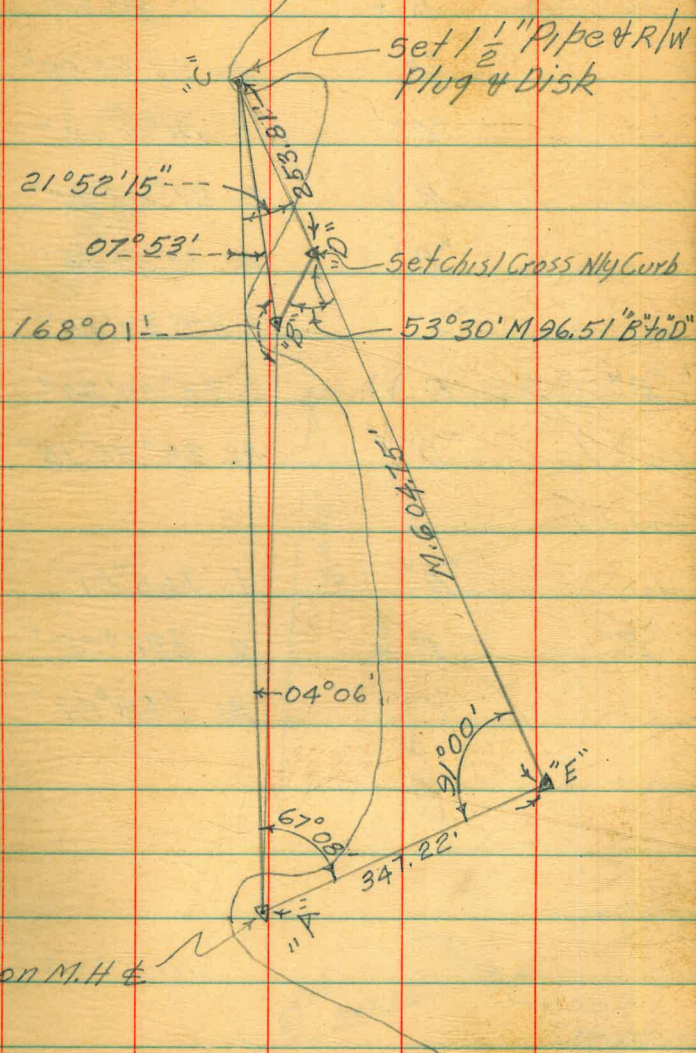 Set 1 1/2" Pipe & R/W
Plug & Disk
"C"
253.81'
21°52'15"
07°53'
"D"
Set chisl Cross Nly Curb
168°01'
"B"
53°30' M 96.51 "B" to "D"
M. 604.75'
04°06'
91°00'
"E"
67°08'
347.22'
"A"
on M.H ℄